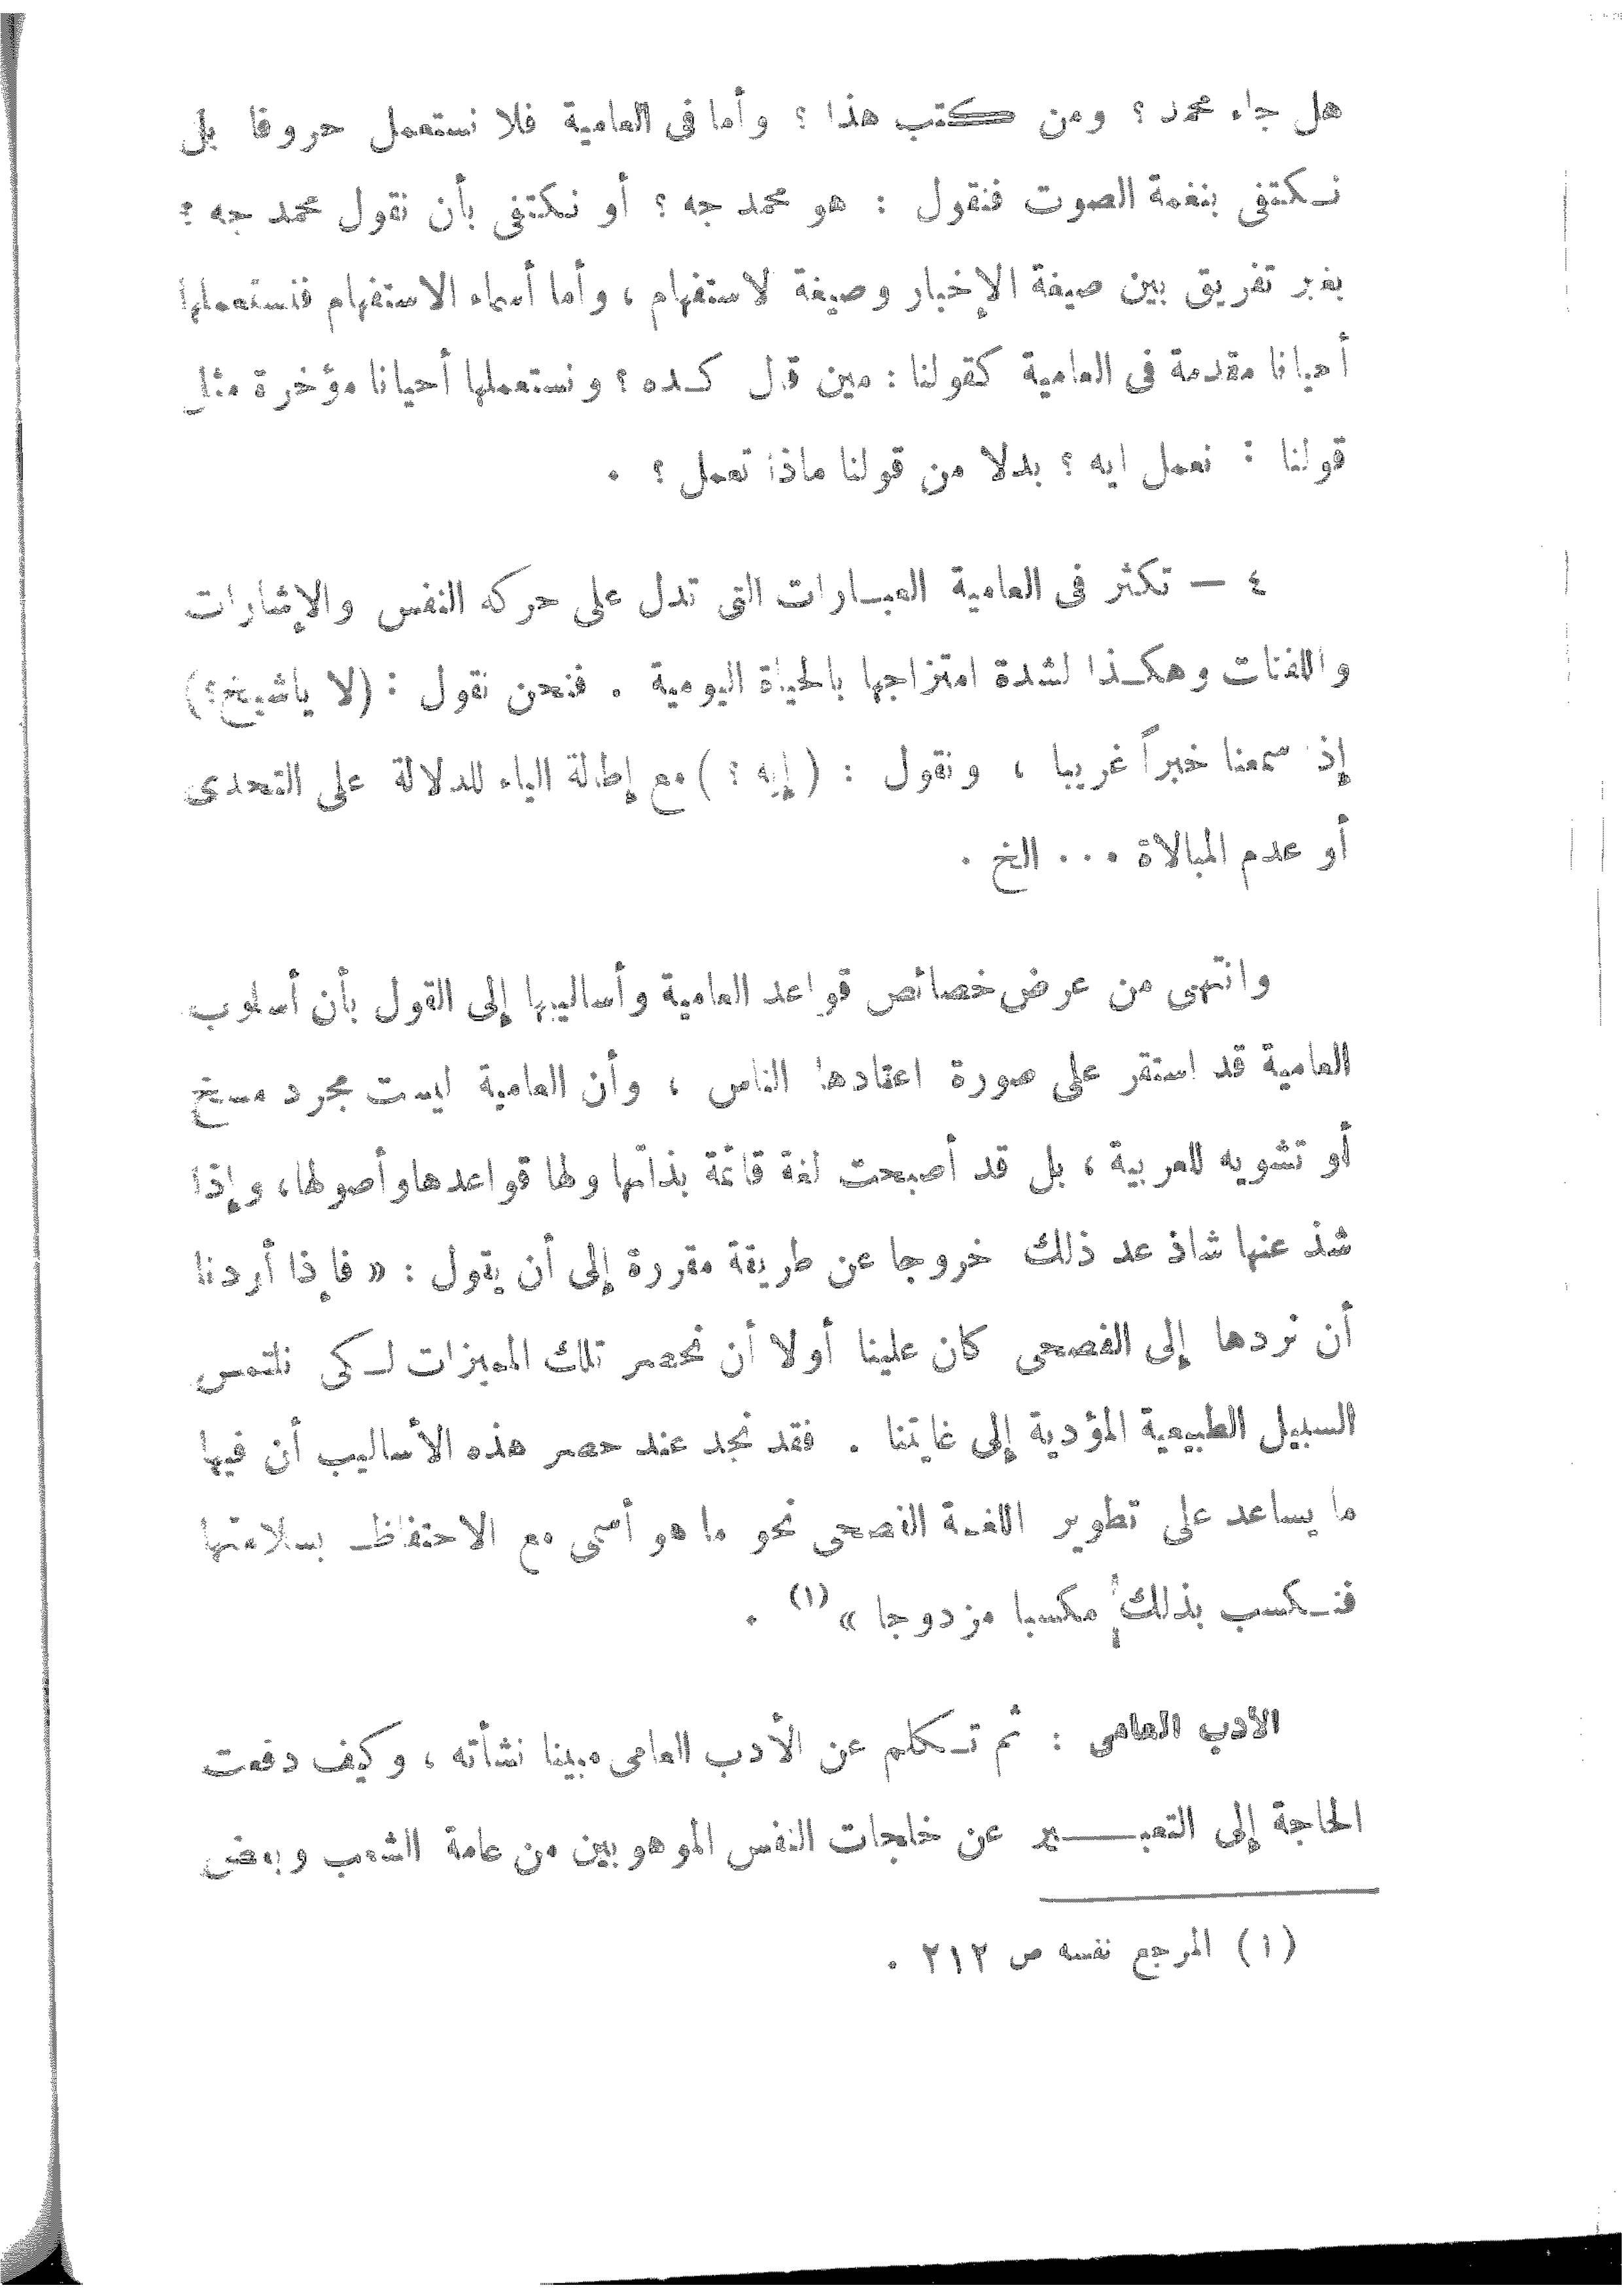 هل جاء محمد ؟ ومن كتب هذا ؟ وأما فى العامية فلا نستعمل حروفا بل
نكتفى بنغمة الصوت فنقول : هو محمد جه ؟ أو نكتفى بأن نقول محمد جه ؟
بغير تفريق بين صيغة الإخبار وصيغة لاستفهام ، وأما أسماء الاستفهام فنستعملها
أحيانا مقدمة فى العامية كقولنا : مين قال كده ؟ ونستعملها أحيانا مؤخرة مثل
قولنا : نعمل ايه ؟ بدلا من قولنا ماذا تعمل ؟ .
٤ — تكثر فى العامية العبارات التى تدل على حركه النفس والإشارات
واللفتات وهكذا لشدة امتزاجها بالحياة اليومية . فنحن نقول : (لا ياشيخ؟)
إذ سمعنا خبراً غريبا ، ونقول : (إيه ؟) مع إطالة الياء للدلالة على التحدى
أو عدم المبالاة ... الخ .
وانتهى من عرض خصائص قواعد العامية وأساليبها إلى القول بأن أسلوب
العامية قد استقر على صورة اعتادها الناس ، وأن العامية ليست مجرد مسخ
أو تشويه للعربية ، بل قد أصبحت لغة قائمة بذاتها ولها قواعدها وأصولها، وإذا
شذ عنها شاذ عد ذلك خروجا عن طريقة مقررة إلى أن يقول : « فإذا أردنا
أن نردها إلى الفصحى كان علينا أولا أن نحصر تلك المميزات لكى نلتمس
السبيل الطبيعية المؤدية إلى غايتنا . فقد نجد عند حصر هذه الأساليب أن فيها
ما يساعد على تطوير اللغة الفصحى نحو ما هو أسمى مع الاحتفاظ بسلامتها
فنكسب بذلك مكسبا مزدوجا » (١) .
الأدب العامى : ثم تكلم عن الأدب العامى مبينا نشأته ، وكيف دفعت
الحاجة إلى التعبير عن خلجات النفس الموهوبين من عامة الشعب وبعض
(١) المرجع نفسه ص ٢١٢ .